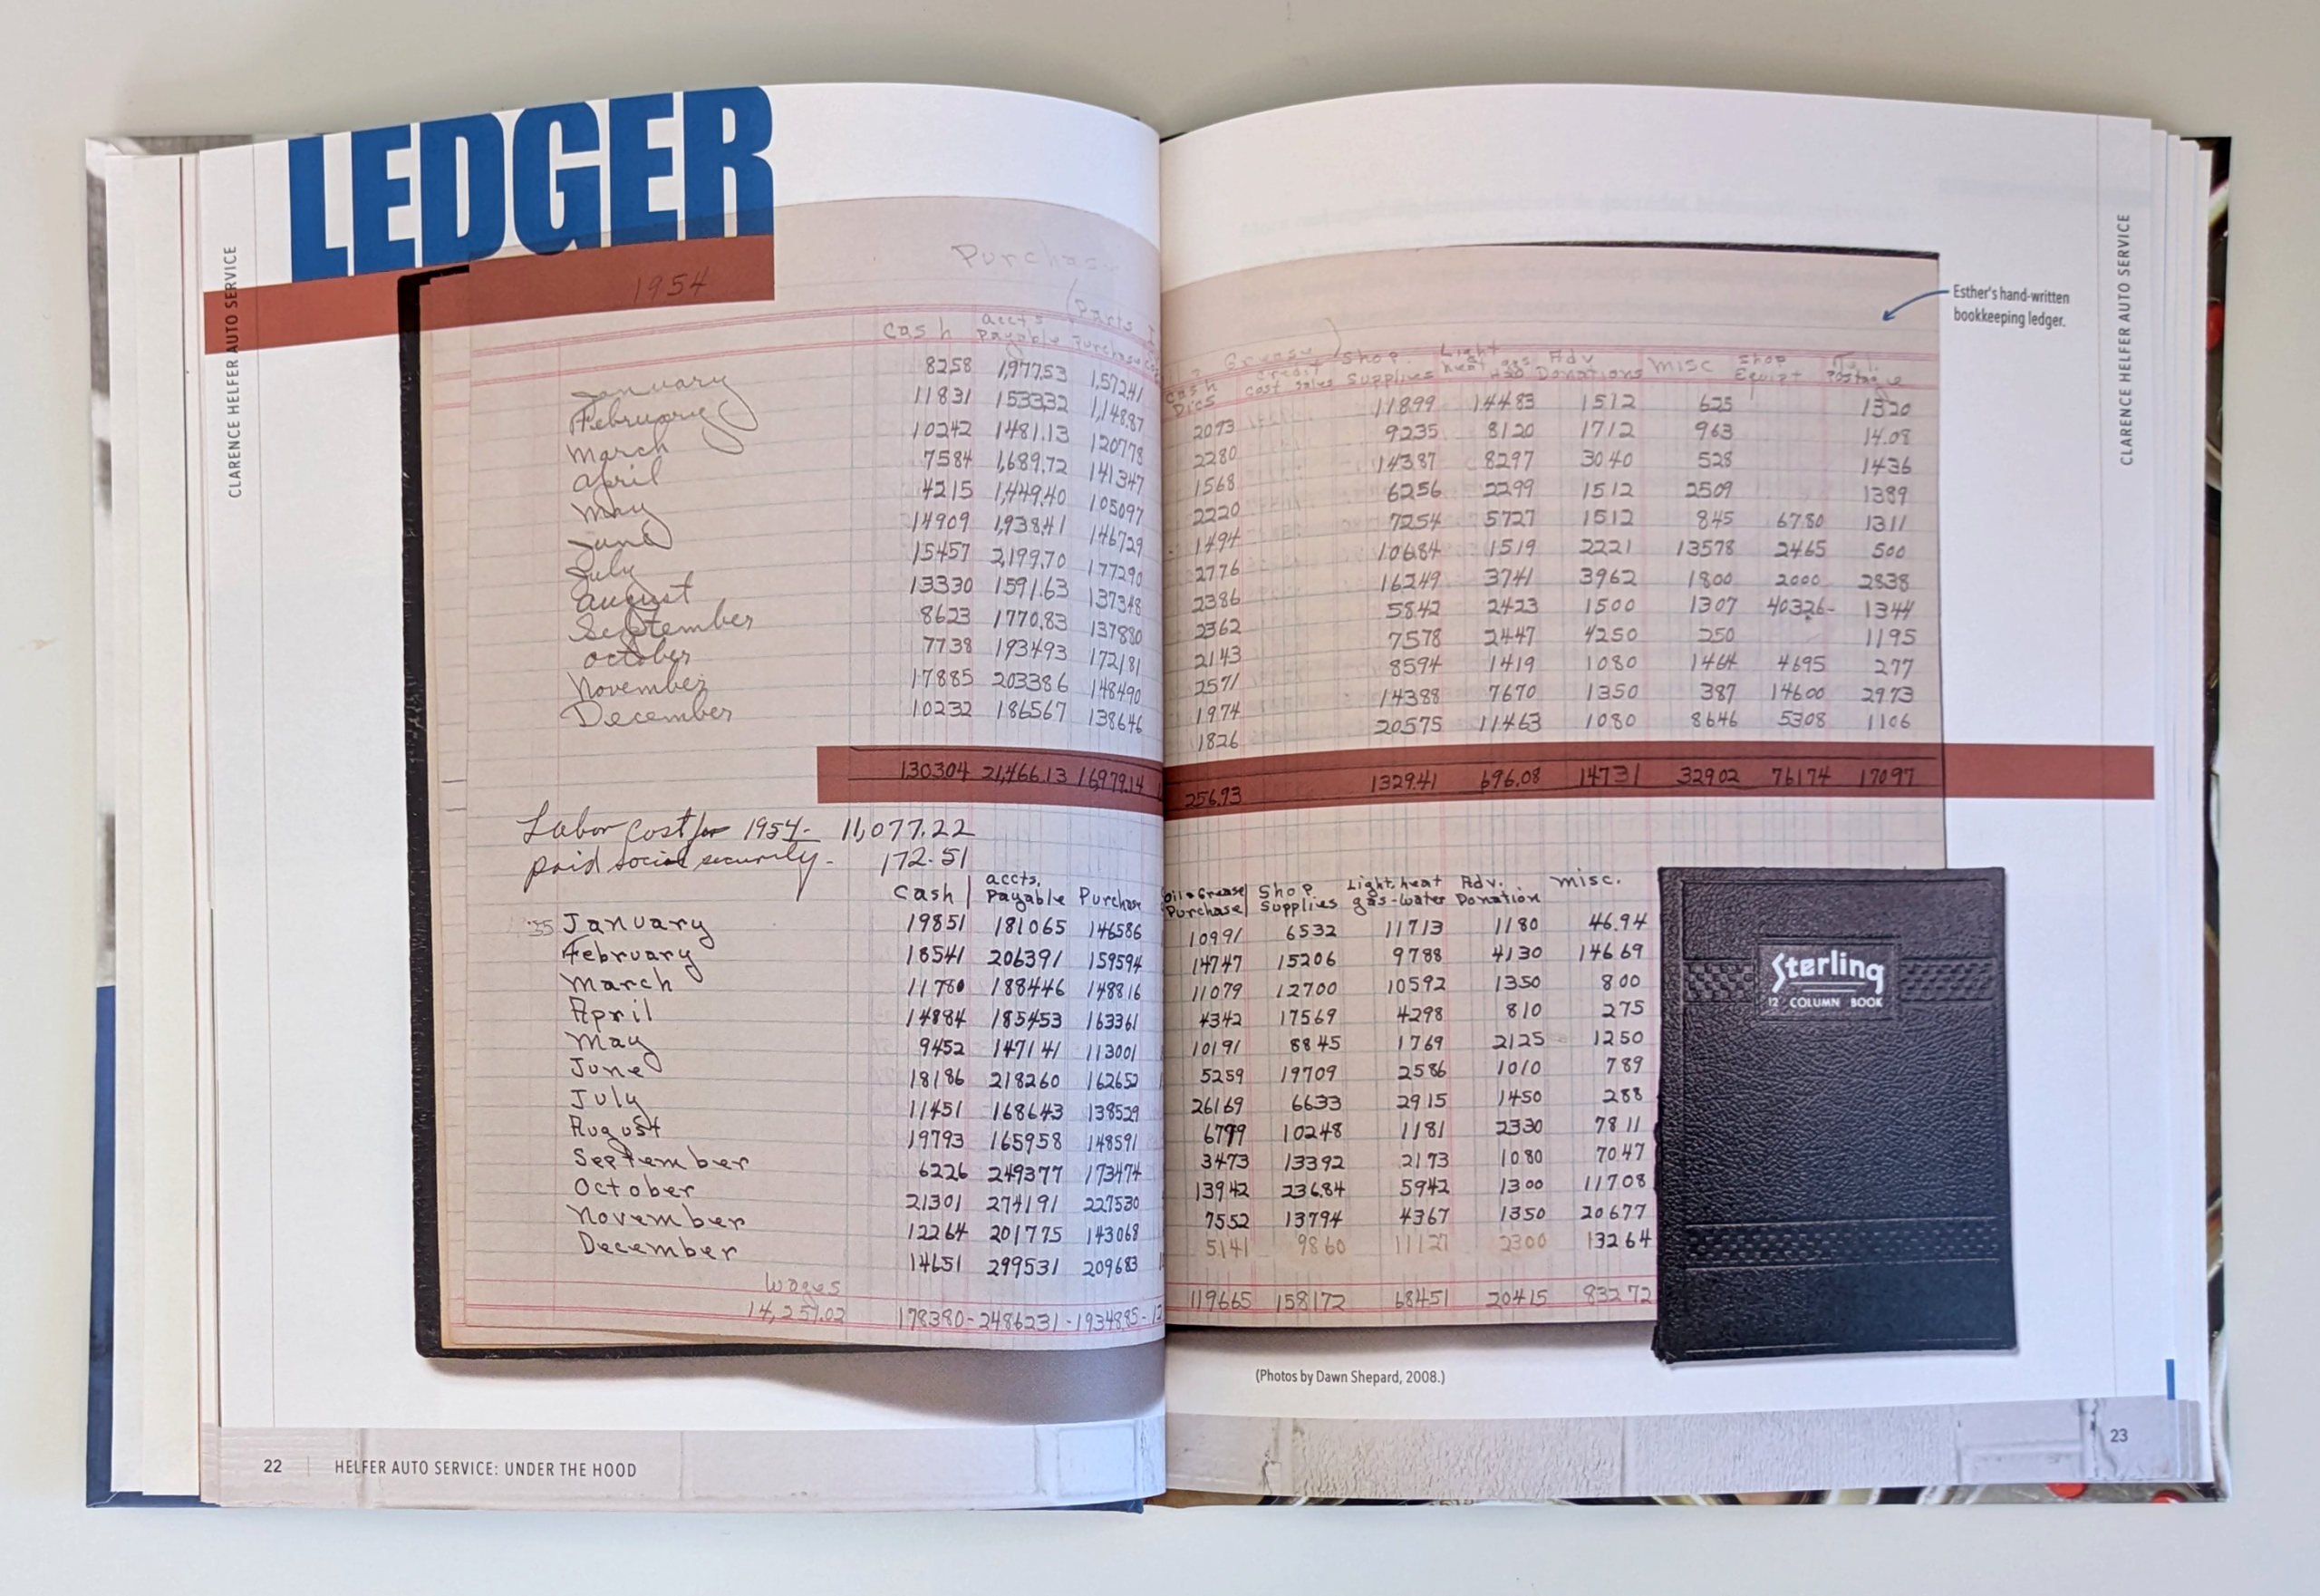 LEDGER
CLARENCE HELFER AUTO SERVICE
1954
Purchase
(Parts
Cash accts Payable Purchase
January 8258 1,977.53 1,572.41
February 11831 153332 1,148.87
March 10242 1481.13 120778
April 7584 1,689.72 141347
May 4215 1,449.40 105097
June 14909 1,938.41 146729
July 15457 2,199.70 177290
August 13330 1591.63 137348
September 8623 1770.83 137880
October 7738 193493 172181
November 17885 203386 148490
December 10232 186567 138646
130304 21,466.13 16,979.14
Labor Cost for 1954- 11,077.22
paid social security- 172.51
Cash accts. Payable Purchase
55 January 19851 181065 146586
February 18541 206391 159594
March 11780 188446 148816
April 14884 185453 163361
May 9452 147141 113001
June 18186 218260 162652
July 11451 168643 138529
August 19793 165958 148591
September 6226 249377 173474
October 21301 274191 227530
November 12264 201775 143068
December 14651 299531 209683
Wages
14,257.02 178380- 2486231- 1934885-
22 HELFER AUTO SERVICE: UNDER THE HOOD
Grease)
Cash Discs Credit Cost Sales Shop Supplies Light heat gas H20 Adv Donations Misc Shop Equipt Tel. Postage
2073 11899 14483 1512 625 1320
2280 9235 8120 1712 963 14.08
1568 14387 8297 3040 528 1436
2220 6256 2299 1512 2509 1389
1494 7254 5727 1512 845 6780 1311
2776 10684 1519 2221 13578 2465 500
2386 16249 3741 3962 1800 2000 2838
2362 5842 2423 1500 1307 40326- 1344
2143 7578 2447 4250 250 1195
2571 8594 1419 1080 1464 4695 277
1974 14388 7670 1350 387 14600 2973
1826 20575 11463 1080 8646 5308 1106
256.93 1329.41 696.08 14731 32902 76174 17097
Oil & Grease Purchase Shop Supplies Light heat gas-water Adv. Donation misc.
10991 6532 11713 1180 46.94
14747 15206 9788 4130 14669
11079 12700 10592 1350 800
4342 17569 4298 810 275
10191 8845 1769 2125 1250
5259 19709 2586 1010 789
26169 6633 2915 1450 288
6799 10248 1181 2330 7811
3473 13392 2173 1080 7047
13942 23684 5942 1300 11708
7552 13794 4367 1350 20677
5141 9860 11127 2300 13264
119665 158172 68451 20415 83272
Esther's hand-written
bookkeeping ledger.
CLARENCE HELFER AUTO SERVICE
Sterling
12 COLUMN BOOK
(Photos by Dawn Shepard, 2008.)
23